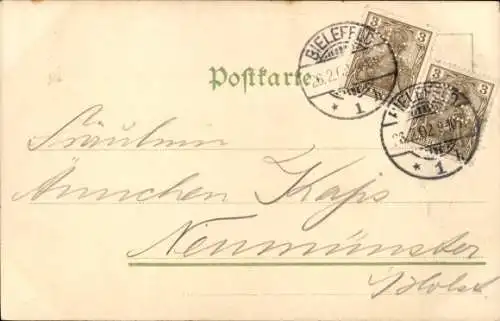 Postkarte
3 3
3 3
BIELEFELD
26.2.02. 9-10V.
* 1
BIELEFELD
26.2.02. 9-10V.
* 1
Fräulein
Ännchen Kaps
Neumünster
Holst.